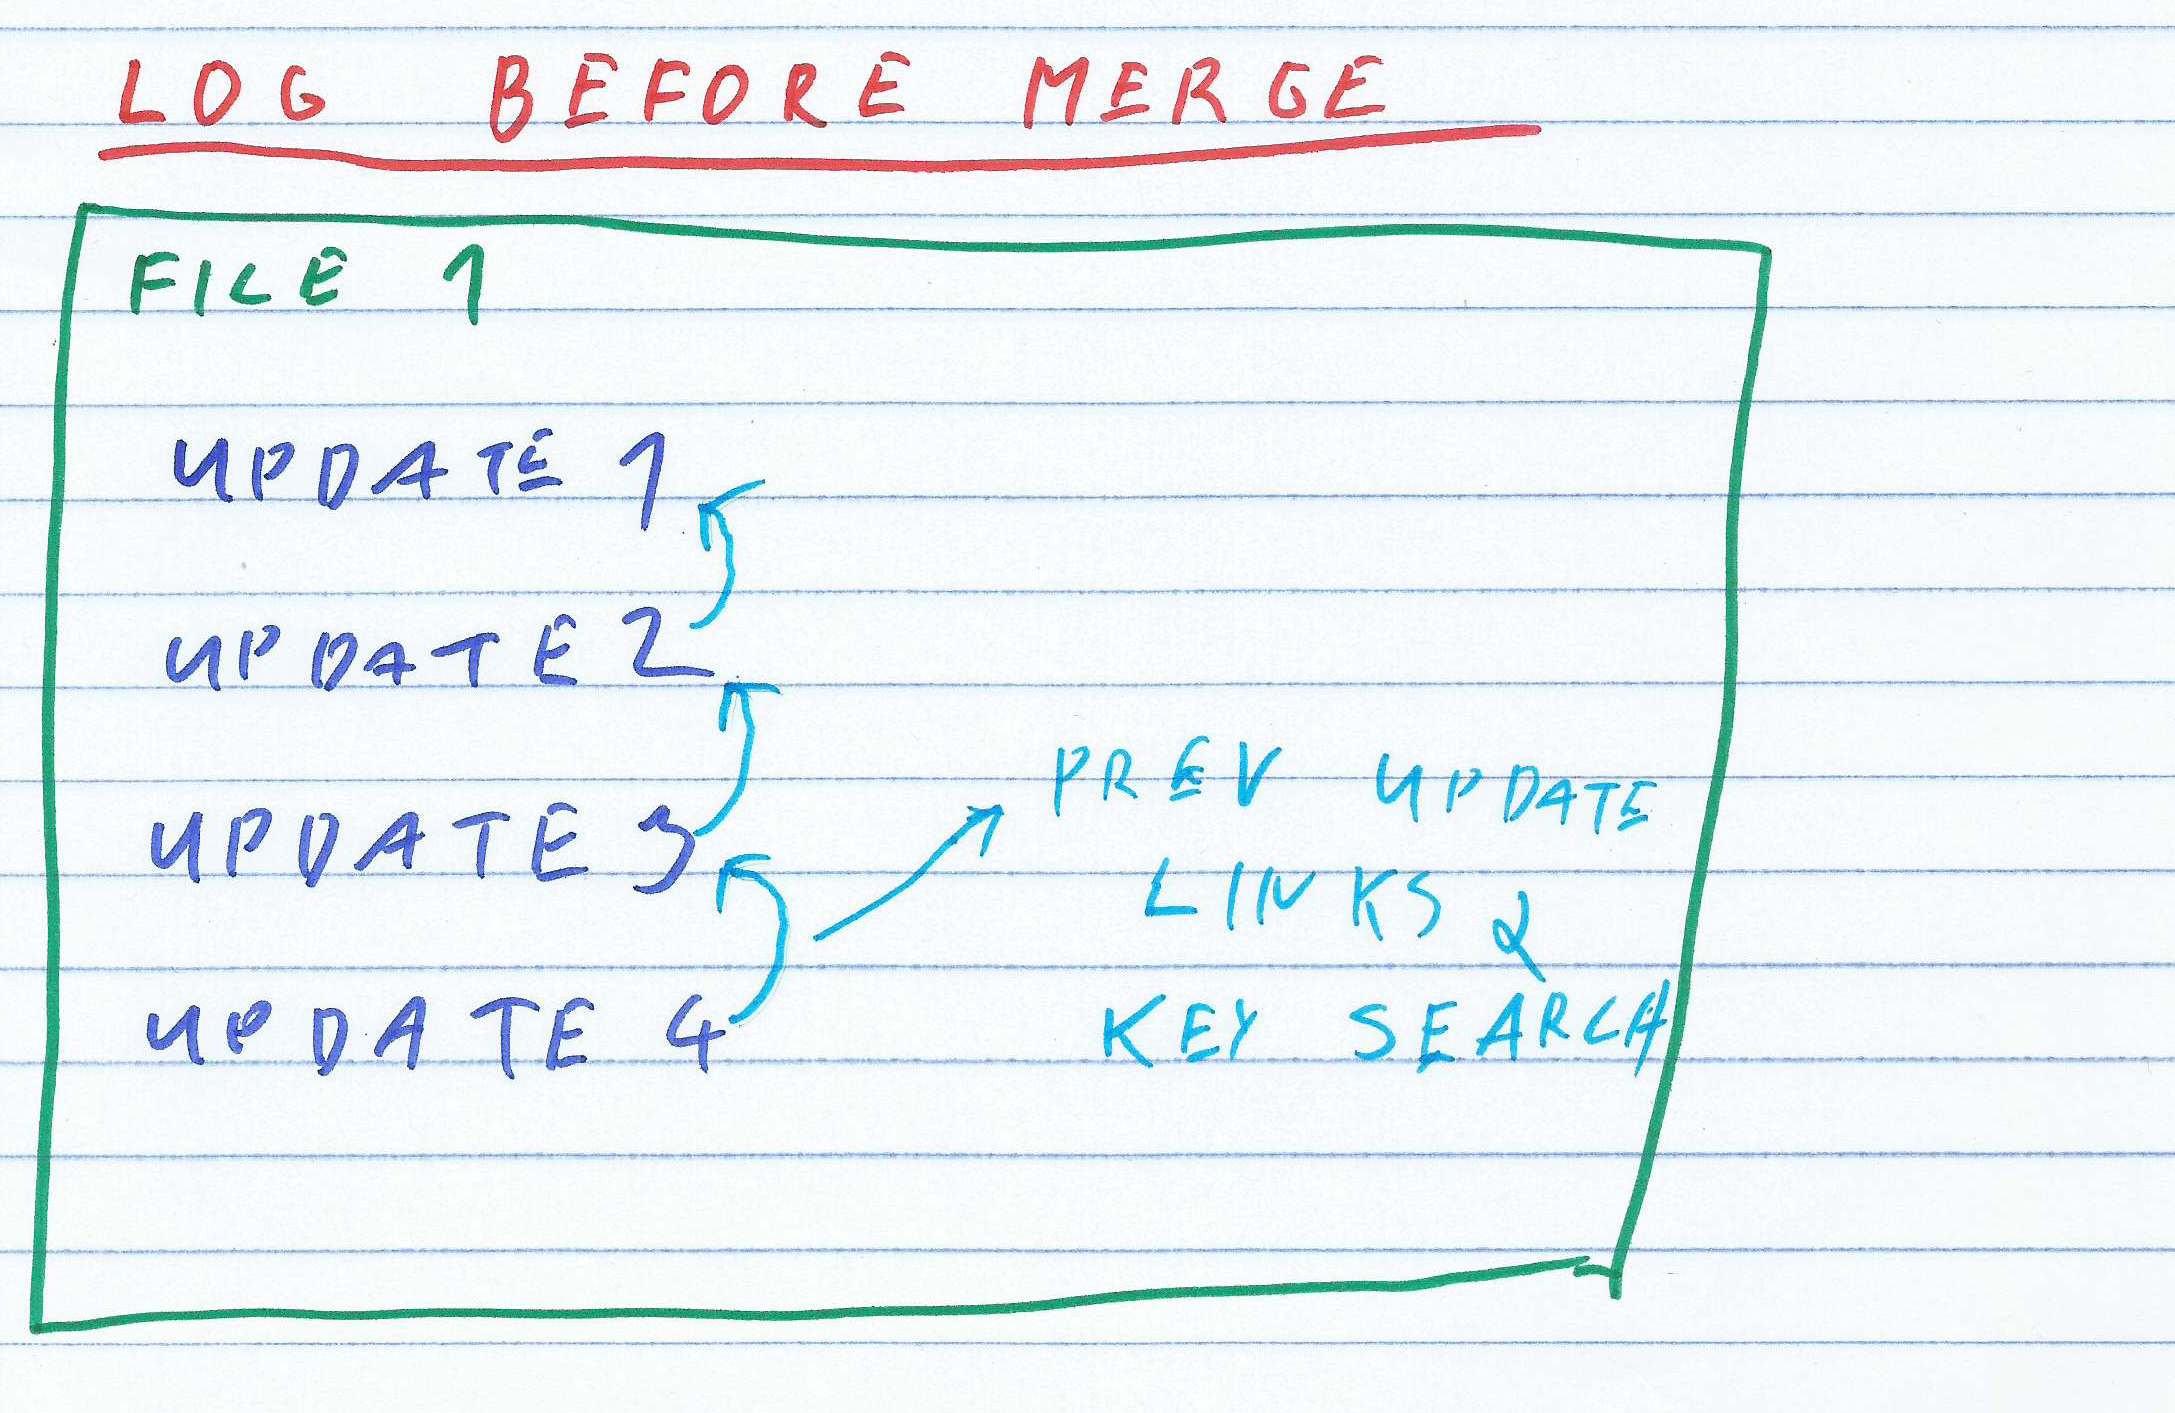 LOG BEFORE MERGE
FILE 1
UPDATE 1
UPDATE 2
UPDATE 3
UPDATE 4
PREV UPDATE
LINKS &
KEY SEARCH